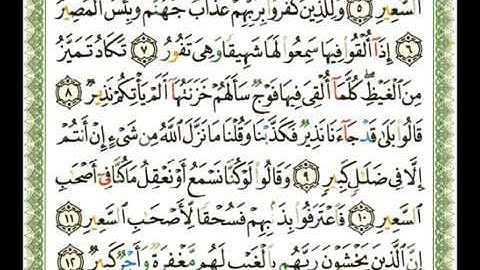 السَّعِيرِ ۝٥ وَلِلَّذِينَ كَفَرُوا بِرَبِّهِمْ عَذَابُ جَهَنَّمَ وَبِئْسَ الْمَصِيرُ
۝٦ إِذَآ أُلْقُوا فِيهَا سَمِعُوا لَهَا شَهِيقًا وَهِيَ تَفُورُ ۝٧ تَكَادُ تَمَيَّزُ
مِنَ الْغَيْظِ ۖ كُلَّمَآ أُلْقِيَ فِيهَا فَوْجٌ سَأَلَهُمْ خَزَنَتُهَآ أَلَمْ يَأْتِكُمْ نَذِيرٌ ۝٨
قَالُوا بَلَىٰ قَدْ جَآءَنَا نَذِيرٌ فَكَذَّبْنَا وَقُلْنَا مَا نَزَّلَ اللَّهُ مِن شَيْءٍ إِنْ أَنتُمْ
إِلَّا فِي ضَلَالٍ كَبِيرٍ ۝٩ وَقَالُوا لَوْ كُنَّا نَسْمَعُ أَوْ نَعْقِلُ مَا كُنَّا فِيٓ أَصْحَابِ
السَّعِيرِ ۝١٠ فَاعْتَرَفُوا بِذَنبِهِمْ فَسُحْقًا لِّأَصْحَابِ السَّعِيرِ ۝١١
إِنَّ الَّذِينَ يَخْشَوْنَ رَبَّهُم بِالْغَيْبِ لَهُم مَّغْفِرَةٌ وَأَجْرٌ كَبِيرٌ ۝١٢